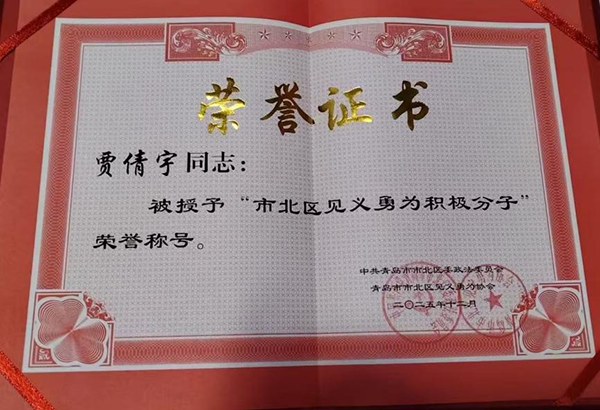 荣誉证书
贾倩宇同志：
被授予“市北区见义勇为积极分子”
荣誉称号。
中共青岛市市北区委政法委员会
青岛市市北区见义勇为协会
二〇二五年十二月